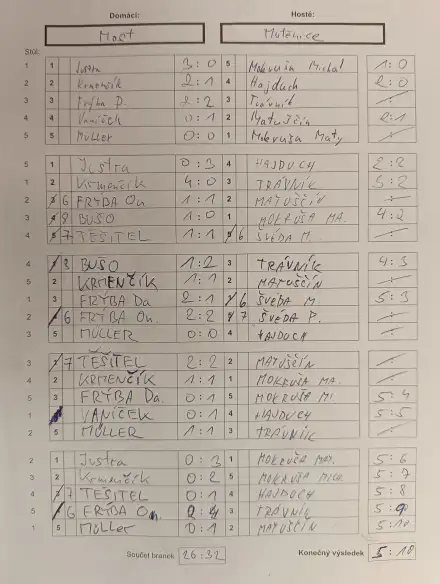 Domácí: Hosté:
Most Mutěnice
Stůl:
1 1 Justra 3:0 5 Mokruša Michal 1:0
2 2 Krmenčík 2:1 4 Hajduch 2:0
3 3 Frýba D. 2:2 3 Trávník
4 4 Vaníček 0:1 2 Matuščín 2:1
5 5 Müller 0:0 1 Mokruša Maty
5 1 Justra 0:3 4 HAJDUCH 2:2
1 2 Krmenčík 4:0 3 TRÁVNÍK 3:2
2 6 FRÝBA On 1:1 2 MATUŠČÍN
3 8 BUŠO 1:0 1 MOKRUŠA MA. 4:2
4 7 TĚŠITEL 1:1 6 ŠVÉDA M.
4 8 BUŠO 1:2 3 TRÁVNÍK 4:3
5 2 KRMENČÍK 1:1 2 MATUŠČÍN
1 3 FRÝBA Da 2:1 6 ŠVÉDA M. 5:3
2 6 FRÝBA On. 2:2 7 ŠVÉDA P.
3 5 MÜLLER 0:0 4 HAJDUCH
3 7 TĚŠITEL 2:2 2 MATUŠČÍN
4 2 KRMENČÍK 1:1 1 MOKRUŠA MA.
5 3 FRÝBA Da. 0:1 5 MOKRUŠA MI. 5:4
1 VANÍČEK 0:1 4 HAJDUCH 5:5
2 5 MÜLLER 1:1 3 TRÁVNÍK
2 1 Justra 0:3 1 MOKRUŠA MAT. 5:6
3 2 Krmenčík 0:2 5 MOKRUŠA MICH. 5:7
4 7 TĚŠITEL 0:1 4 HAJDUCH 5:8
5 6 FRÝBA On. 2:4 3 TRÁVNÍK 5:9
1 5 Müller 0:1 2 MATUŠČÍN 5:10
Součet branek 26:32 Konečný výsledek 5:10